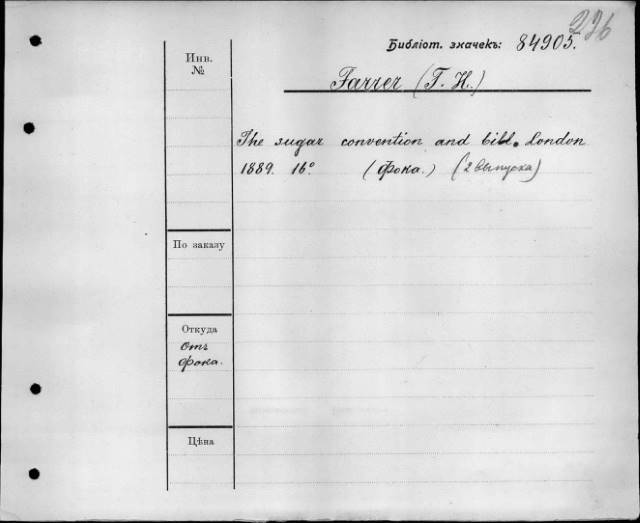 226
Библіот. значекъ: 84905.
Инв.
№
Farrer (T. H.)
The sugar convention and bill. London
1889. 16°. (Фока.) (2 выпуска)
По заказу
Откуда
Отъ
Фока.
Цѣна